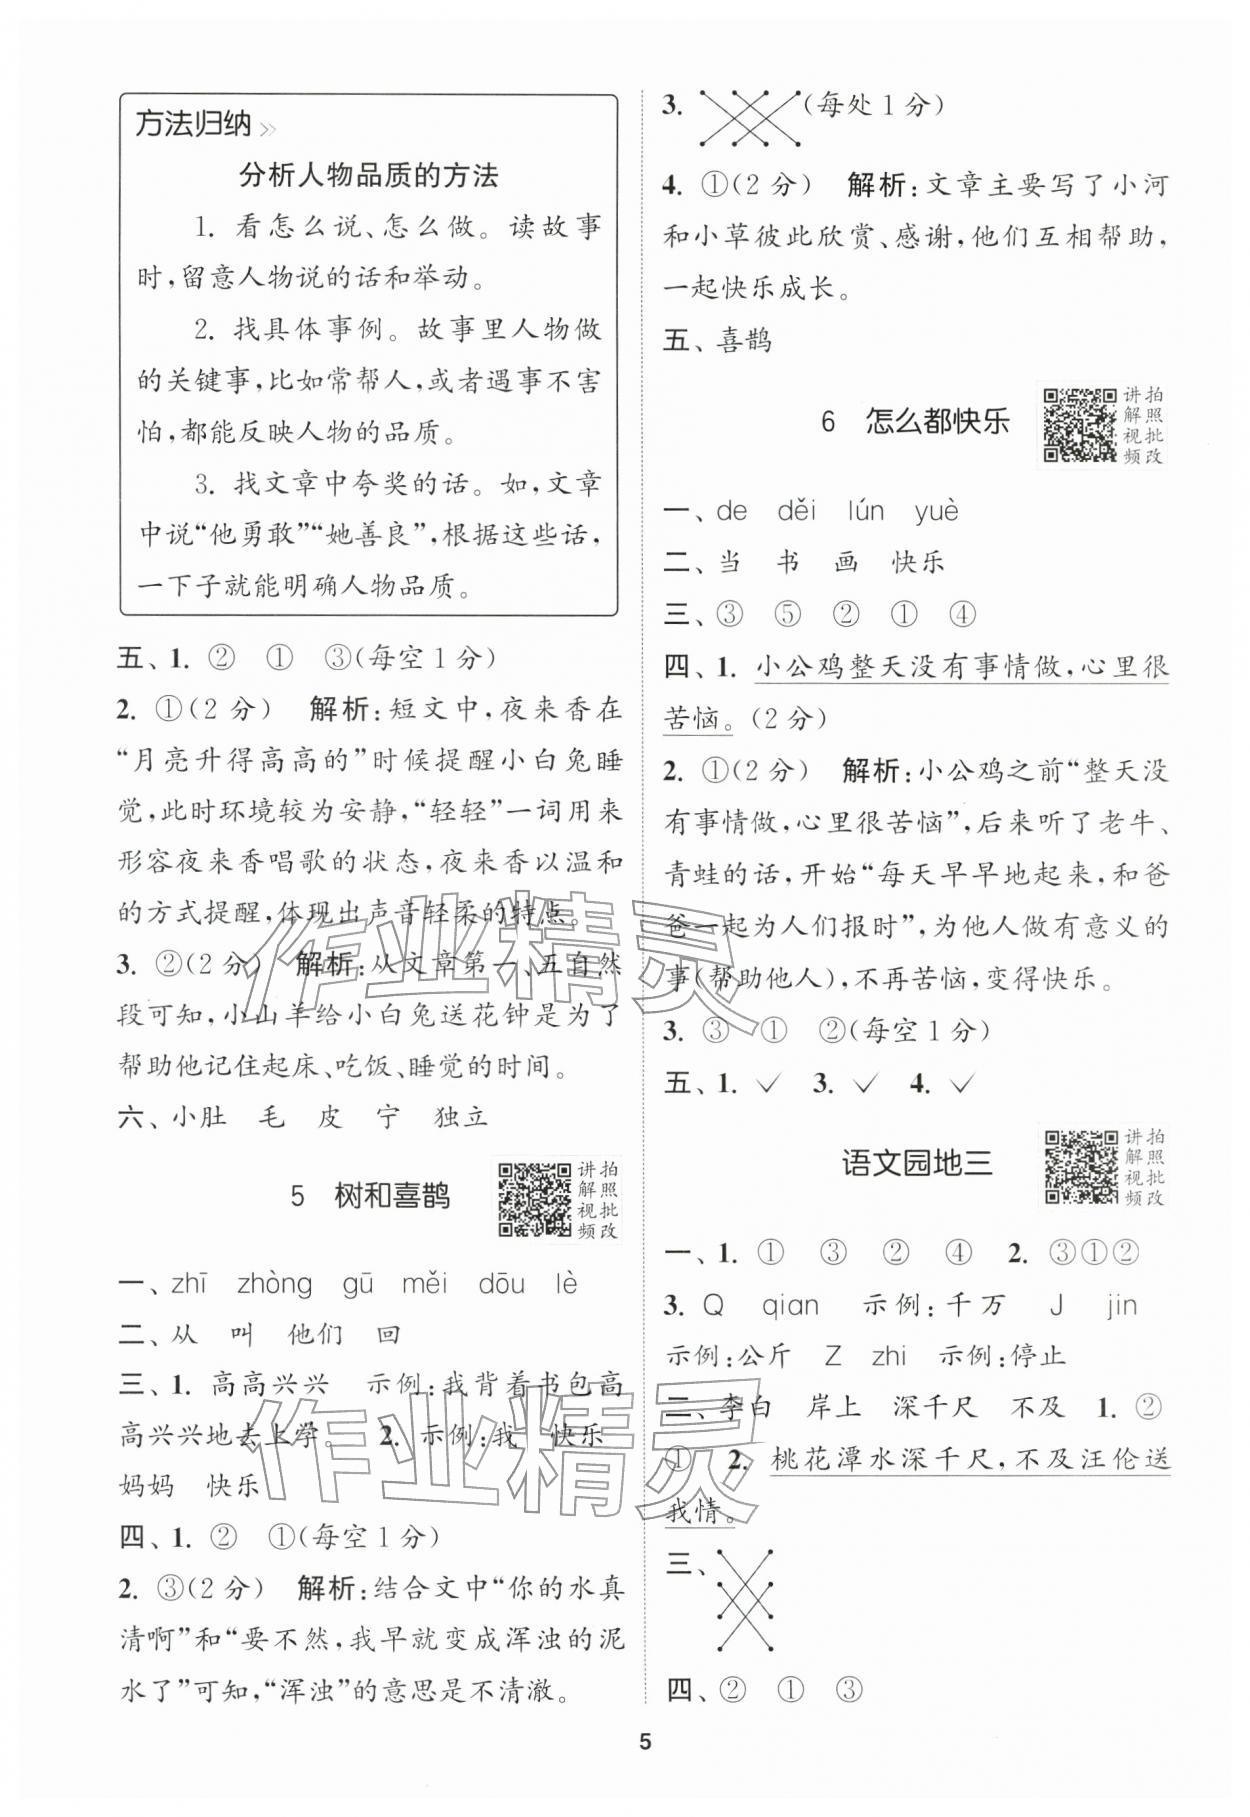 方法归纳 »
分析人物品质的方法
1. 看怎么说、怎么做。读故事
时,留意人物说的话和举动。
2. 找具体事例。故事里人物做
的关键事,比如常帮人,或者遇事不害
怕,都能反映人物的品质。
3. 找文章中夸奖的话。如,文章
中说“他勇敢”“她善良”,根据这些话,
一下子就能明确人物品质。
五、1. ② ① ③(每空1分)
2. ①(2分) 解析:短文中,夜来香在
“月亮升得高高的”时候提醒小白兔睡
觉,此时环境较为安静,“轻轻”一词用来
形容夜来香唱歌的状态,夜来香以温和
的方式提醒,体现出声音轻柔的特点。
3. ②(2分) 解析:从文章第一、五自然
段可知,小山羊给小白兔送花钟是为了
帮助他记住起床、吃饭、睡觉的时间。
六、小肚 毛 皮 宁 独立
5 树和喜鹊
讲拍
解照
视批
频改
一、zhī zhòng gū měi dōu lè
二、从 叫 他们 回
三、1. 高高兴兴 示例:我背着书包高
高兴兴地去上学。 2. 示例:我 快乐
妈妈 快乐
四、1. ② ①(每空1分)
2. ③(2分) 解析:结合文中“你的水真
清啊”和“要不然,我早就变成浑浊的泥
水了”可知,“浑浊”的意思是不清澈。
3. (每处1分)
4. ①(2分) 解析:文章主要写了小河
和小草彼此欣赏、感谢,他们互相帮助,
一起快乐成长。
五、喜鹊
6 怎么都快乐
讲拍
解照
视批
频改
一、de děi lún yuè
二、当 书 画 快乐
三、③ ⑤ ② ① ④
四、1. 小公鸡整天没有事情做,心里很
苦恼。(2分)
2. ①(2分) 解析:小公鸡之前“整天没
有事情做,心里很苦恼”,后来听了老牛、
青蛙的话,开始“每天早早地起来,和爸
爸一起为人们报时”,为他人做有意义的
事(帮助他人),不再苦恼,变得快乐。
3. ③ ① ②(每空1分)
五、1. ✓ 3. ✓ 4. ✓
语文园地三
讲拍
解照
视批
频改
一、1. ① ③ ② ④ 2. ③①②
3. Q qian 示例:千万 J jin
示例:公斤 Z zhi 示例:停止
二、李白 岸上 深千尺 不及 1. ②
① 2. 桃花潭水深千尺,不及汪伦送
我情。
三、
四、② ① ③
5
作业精灵
作业精灵